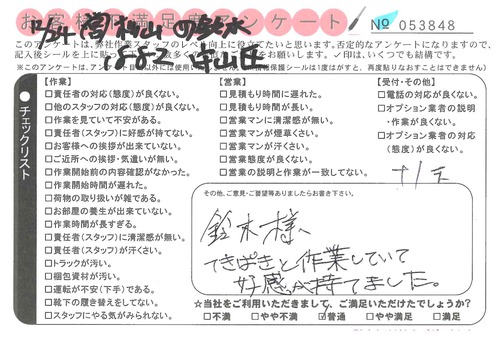 お客様満足度アンケート
№ 053848
このアンケートは、弊社作業スタッフのレベル向上に役立てたいと思います。否定的なアンケートになりますので、
記入後シールを上に貼って
お願いします。✓印は、いくつでも結構です。
【作業】
□責任者の対応(態度)が良くない。
□他のスタッフの対応(態度)が良くない。
□作業を見ていて不安がある。
□責任者(スタッフ)に好感が持てない。
□お客様への挨拶が出来ていない。
□ご近所への挨拶・気遣いが無い。
□作業開始前の内容確認がなかった。
□作業開始時間が遅れた。
□荷物の取り扱いが雑である。
□お部屋の養生が出来ていない。
□作業時間が長すぎる。
□責任者(スタッフ)に清潔感が無い。
□責任者(スタッフ)が汗くさい。
□トラックが汚い。
□梱包資材が汚い。
□運転が不安(下手)である。
□靴下の履き替えをしてない。
□スタッフにやる気がみられない。
【営業】
□見積もり時間に遅れた。
□見積もり時間が長い。
□営業マンに清潔感が無い。
□営業マンが煙草くさい。
□営業マンが汗くさい。
□営業態度が良くない。
□営業の説明と作業が一致してない。
【受付・その他】
□電話の対応が良くない。
□オプション業者の説明
・作業が良くない。
□オプション業者の対応
(態度)が良くない。
チェックリスト
その他、ご意見・ご要望等ありましたらお書き下さい。
鈴木様、
てきぱきと作業していて
好感が持てました。
☆当社をご利用いただきまして、ご満足いただけたでしょうか?
□不満 □やや不満 ☑普通 □やや満足 □満足